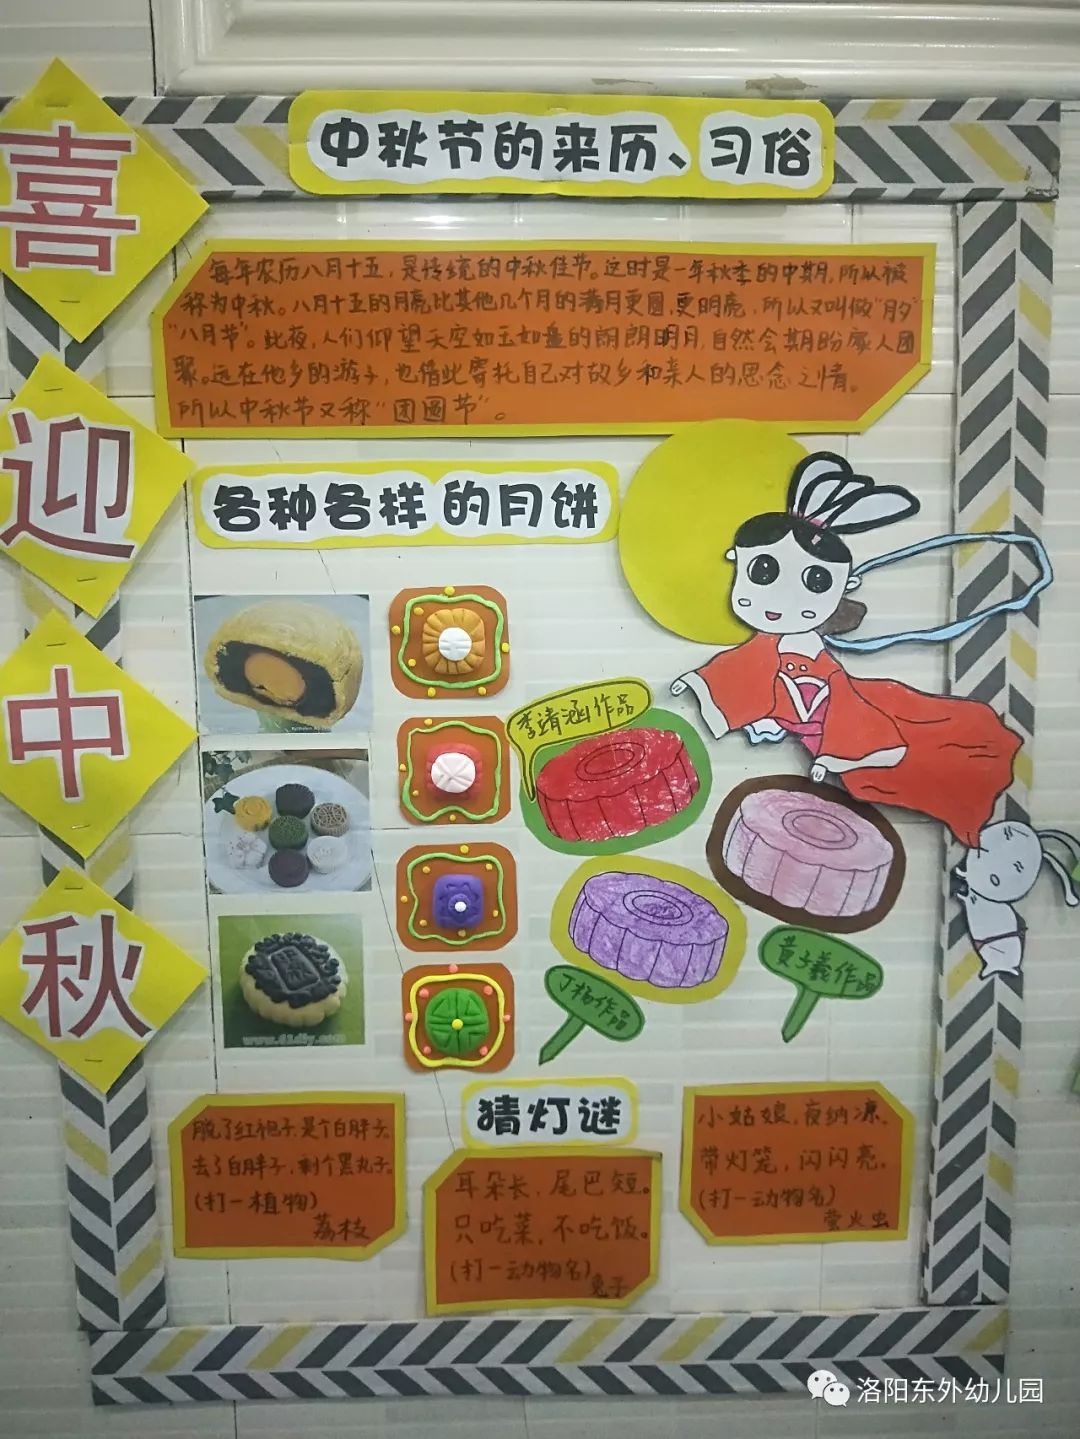 喜
迎
中
秋
中秋节的来历、习俗
每年农历八月十五,是传统的中秋佳节。这时是一年秋季的中期,所以被
称为中秋。八月十五的月亮比其他几个月的满月更圆,更明亮,所以又叫做“月夕”
“八月节”。此夜,人们仰望天空如玉如盘的朗朗明月,自然会期盼家人团
聚。远在他乡的游子,也借此寄托自己对故乡和亲人的思念之情。
所以中秋节又称“团圆节”。
各种各样的月饼
李靖涵作品
黄子羲作品
丁杨作品
www.61diy.com
猜灯谜
脱了红袍子,是个白胖子。
去了白胖子,剩个黑丸子。
(打一植物)
荔枝
耳朵长,尾巴短。
只吃菜,不吃饭。
(打一动物名)
兔子
小姑娘,夜纳凉。
带灯笼,闪闪亮。
(打一动物名)
萤火虫
洛阳东外幼儿园